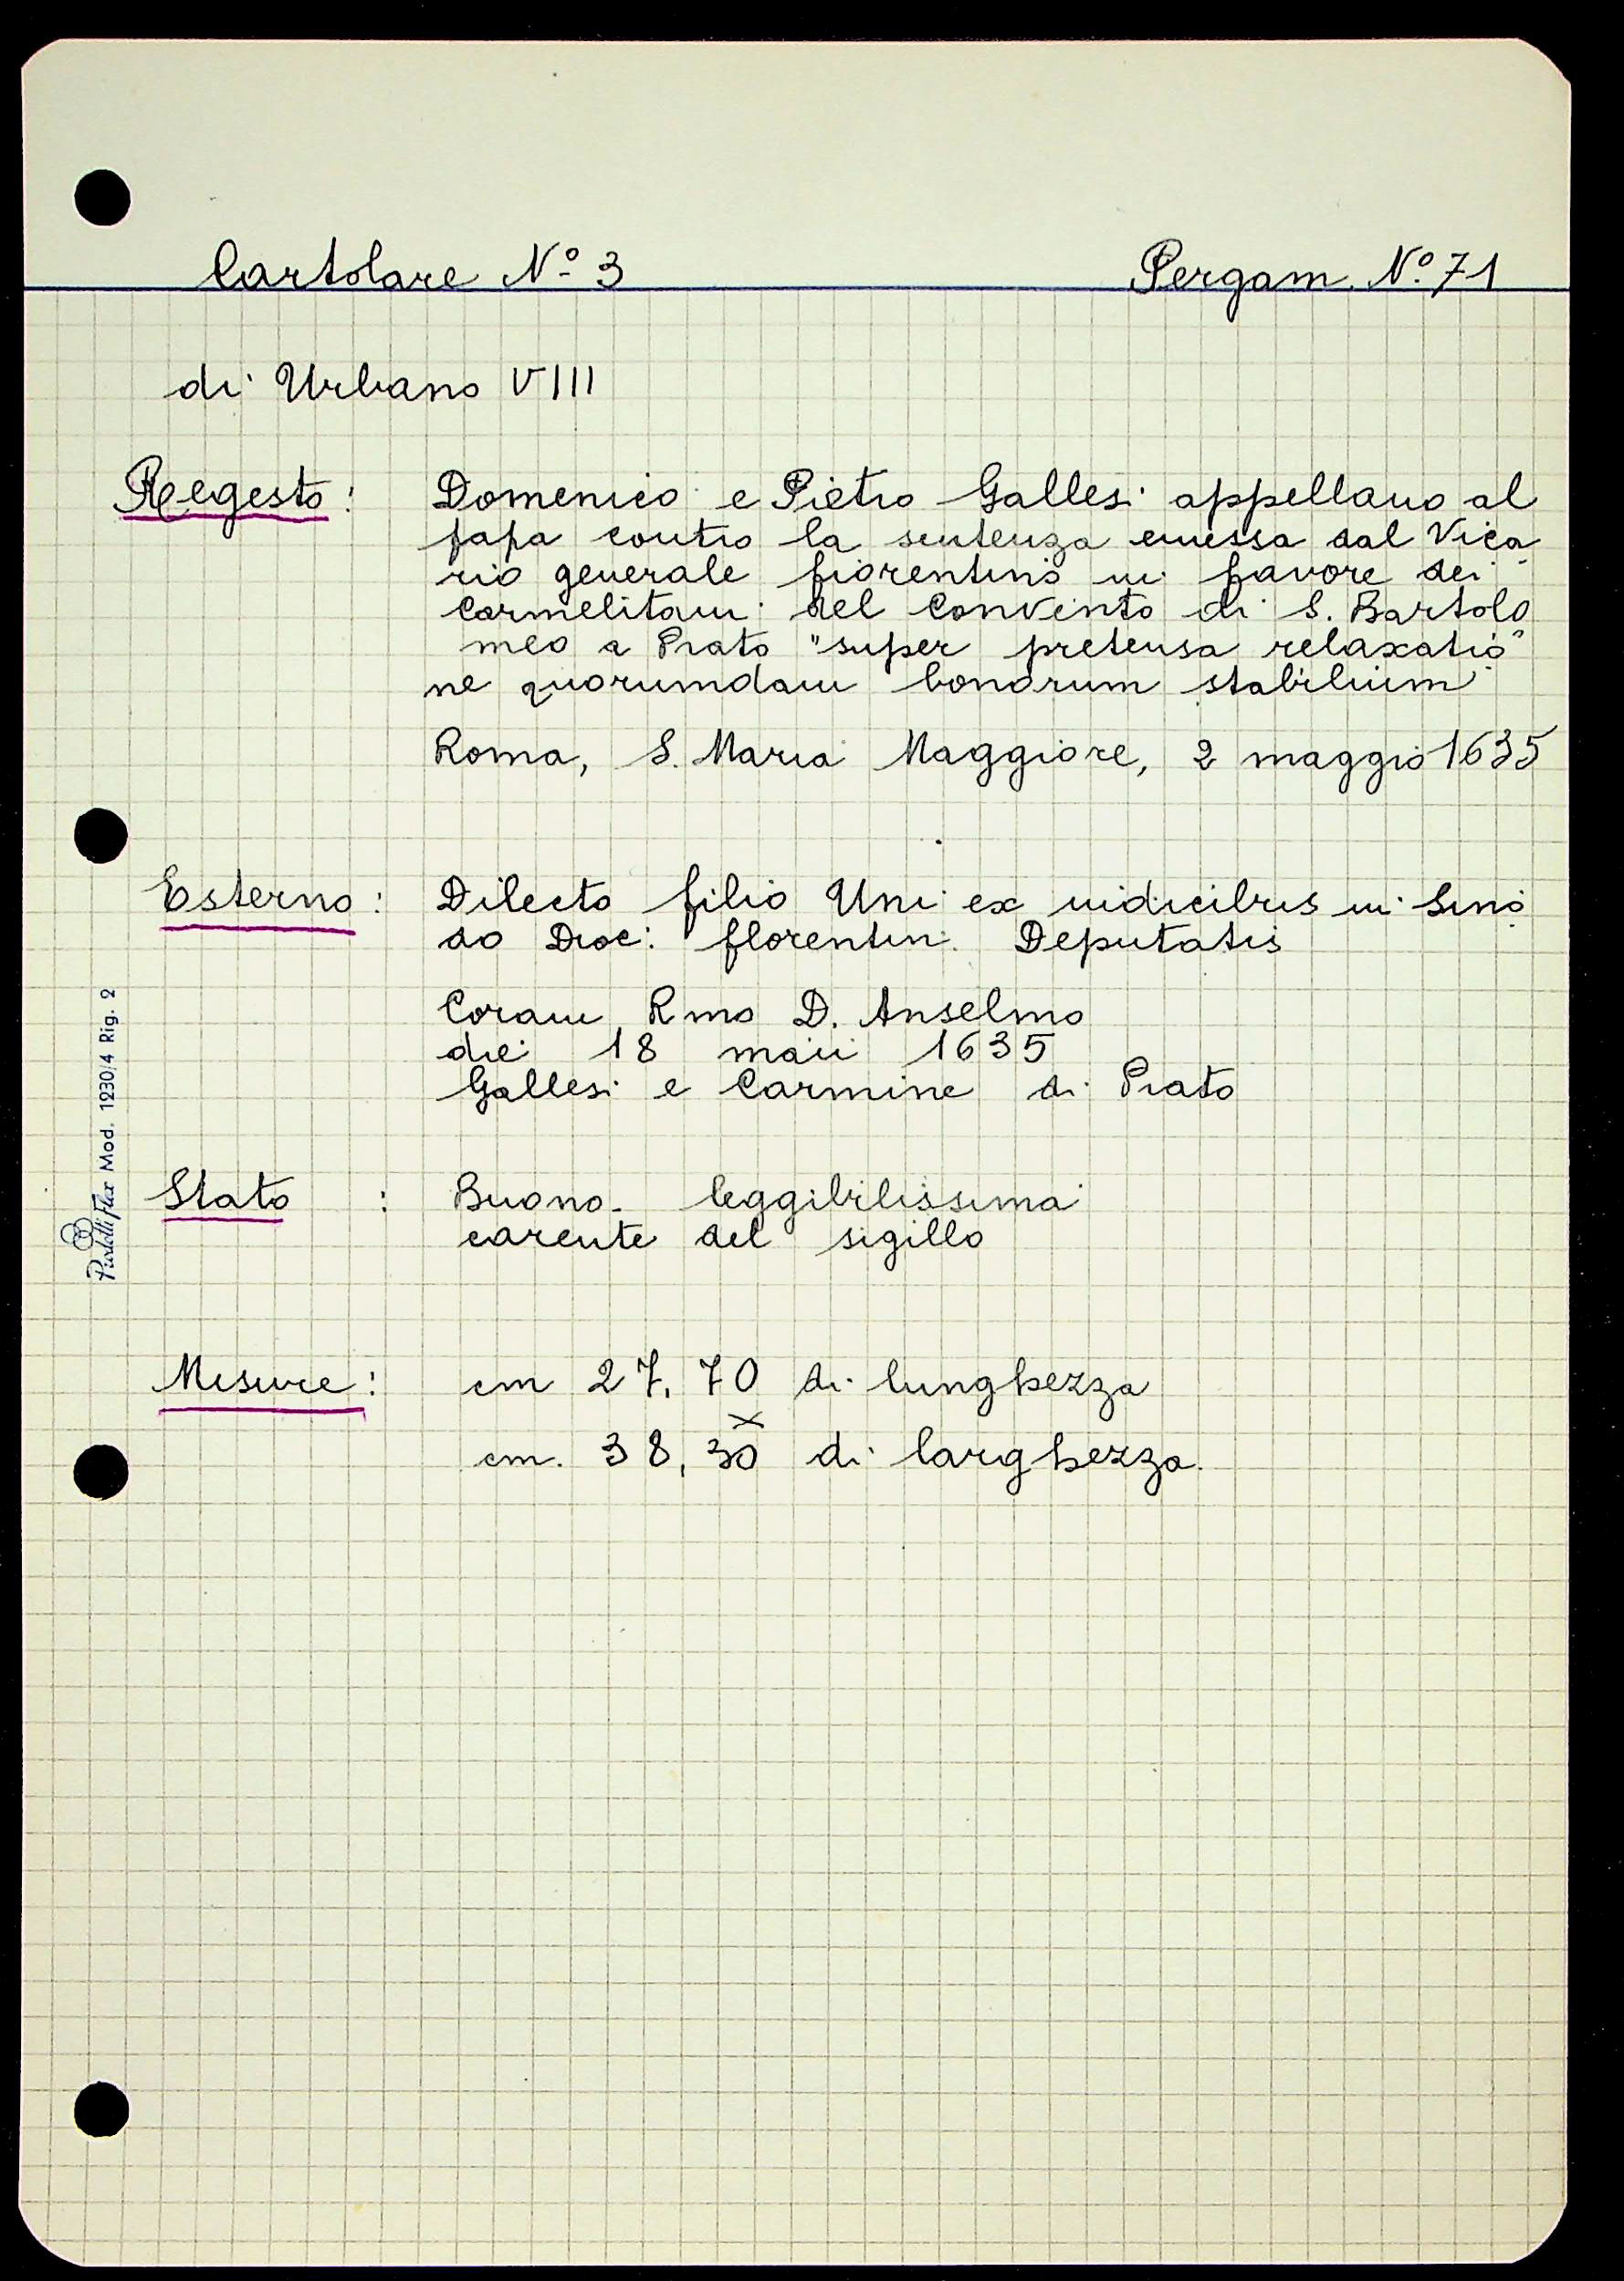 Cartolare N.º 3 Pergam. N.º 71
di Urbano VIII
Regesto: Domenico e Pietro Gallesi appellano al
papa contro la sentenza emessa dal Vica
rio generale fiorentino in favore dei
Carmelitani del Convento di S. Bartolo
meo a Prato "super pretensa relaxatio"
ne quorumdam bonorum stabilium
Roma, S. Maria Maggiore, 2 maggio 1635
Esterno: Dilecto filio Uni ex iudicibus in Sino
do Dioc: florentin. Deputatis
Coram Rmo D. Anselmo
die 18 maii 1635
Gallesi e Carmine di Prato
Stato : Buono - leggibilissima
carente del sigillo
Misure: cm 27,70 di lunghezza
x
cm. 38,30 di larghezza.
Mod. 1230/4 Rig. 2